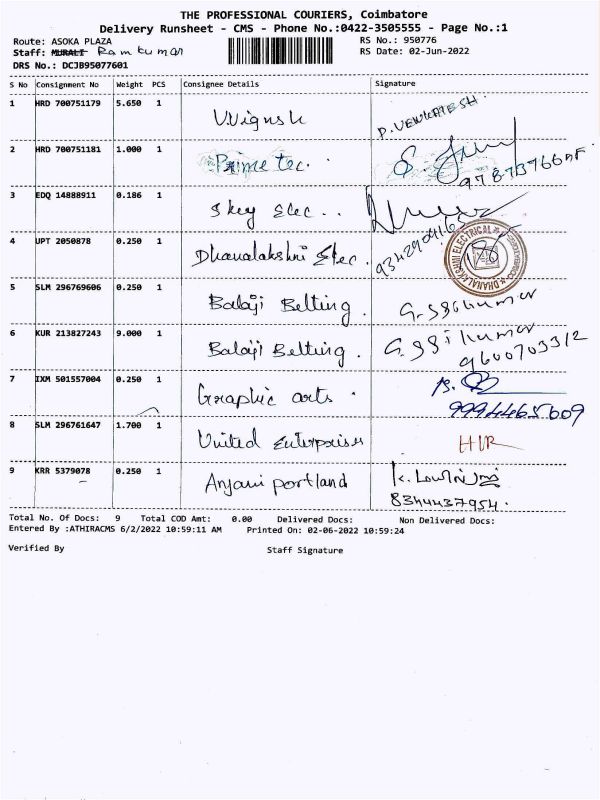 THE PROFESSIONAL COURIERS, Coimbatore
Delivery Runsheet - CMS - Phone No.:0422-3505555 - Page No.:1
Route: ASOKA PLAZA RS No.: 950776
Staff: MURALI Ram kumar RS Date: 02-Jun-2022
DRS No.: DCJB95077601
S No Consignment No Weight PCS Consignee Details Signature
1 HRD 700751179 5.650 1 V.Vignesh P. VENKATESH.
2 HRD 700751181 1.000 1 Prime tec.
3 EDQ 14888911 0.186 1 Skey Elec..
4 UPT 2050878 0.250 1 Dhanalakshmi Elec.
5 SLM 296769606 0.250 1 Balaji Belting.
6 KUR 213827243 9.000 1 Balaji Belting.
9600703312
7 IXM 501557004 0.250 1 Graphic arts.
9994465609
8 SLM 296761647 1.700 1 United Enterprises
9 KRR 5379078 0.250 1 Anjani portland
8344437954.
Total No. Of Docs: 9 Total COD Amt: 0.00 Delivered Docs: Non Delivered Docs:
Entered By :ATHIRACMS 6/2/2022 10:59:11 AM Printed On: 02-06-2022 10:59:24
Verified By Staff Signature